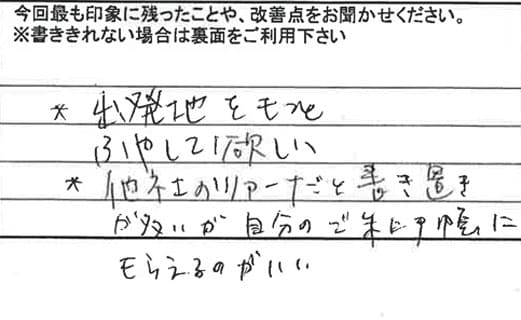 今回最も印象に残ったことや、改善点をお聞かせください。
※書ききれない場合は裏面をご利用下さい
* 出発地をもっと
ふやして欲しい
* 他社のツアーだと書き置き
が多いが自分のご朱印帳に
もらえるのがいい